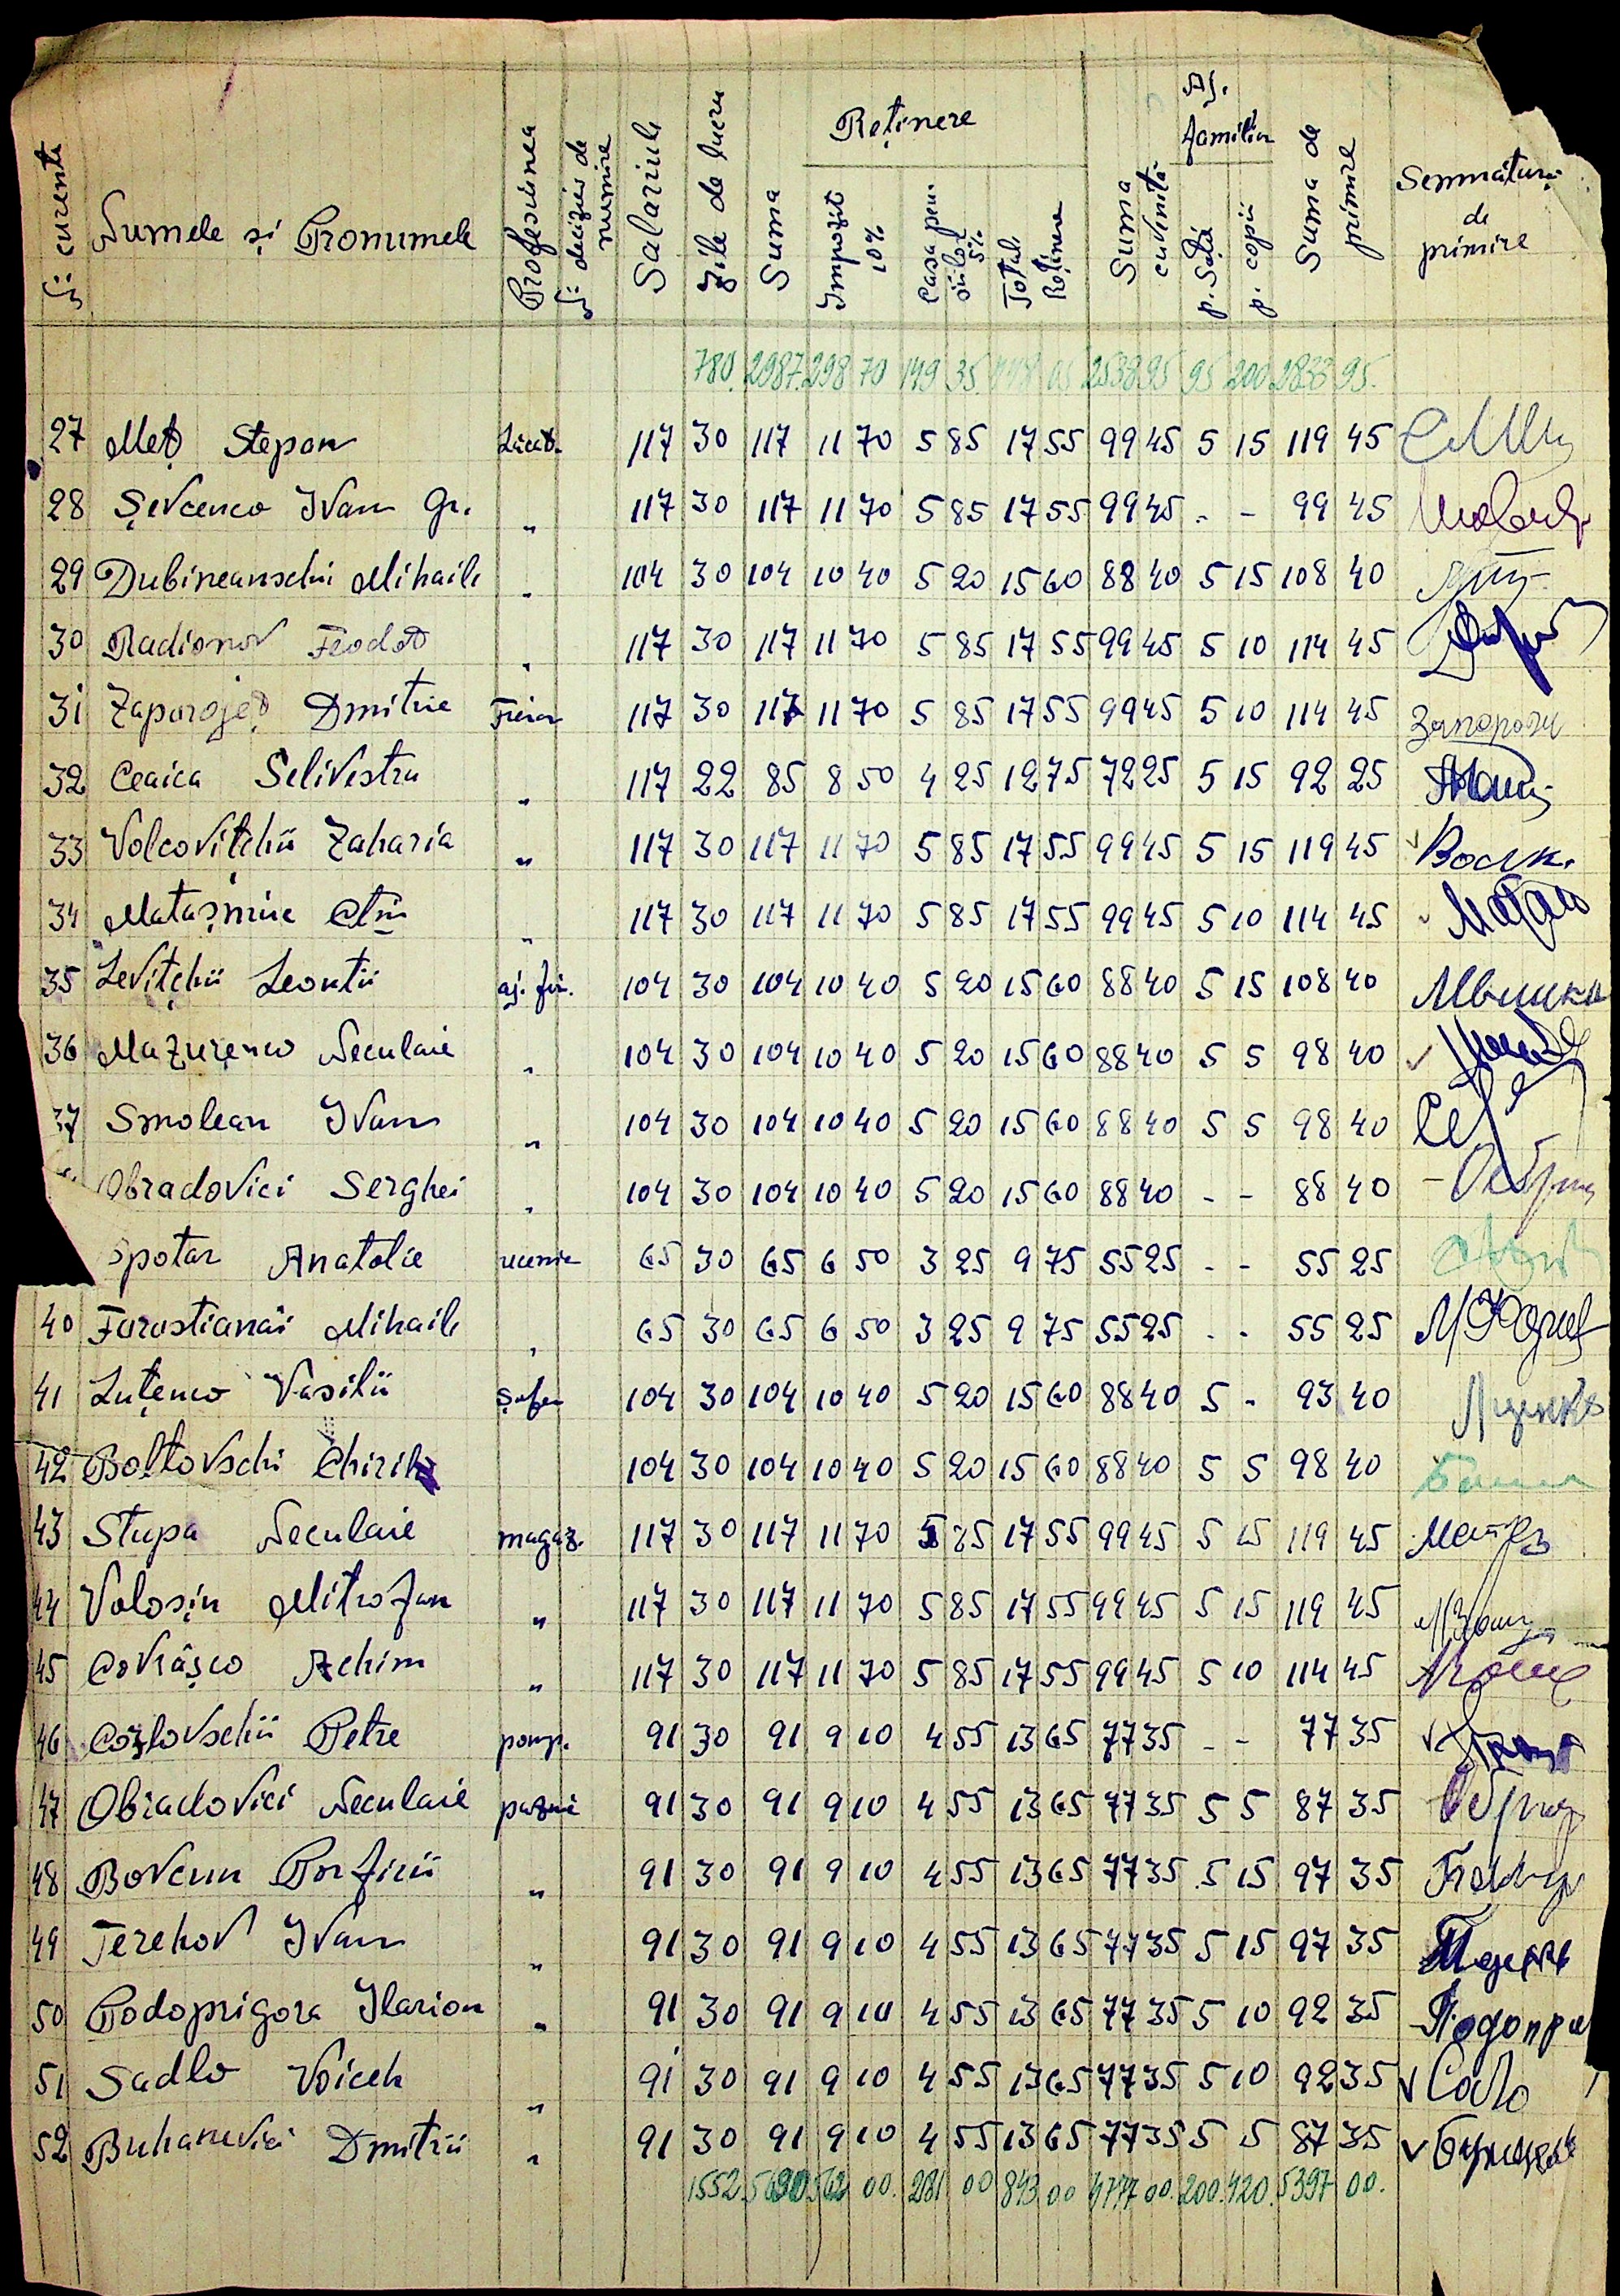 Aj.
Reținere familiar
№ curentă Numele și Pronumele Profesiunea № deciziei de numire Salariulu Zile de lucru Suma Impozit 10% Casa pensiilor 5% Total Reținere Suma cuvenită p. soță p. copii Suma de primire Semnătura de primire
780. 2987. 298 70 149 35. 448 05 2538 95 95 200 2833 95.
27 Meț Stepan Lăcăt. 117 30 117 11 70 5 85 17 55 99 45 5 15 119 45
28 Șevcenco Ivan Gr. „ 117 30 117 11 70 5 85 17 55 99 45 - - 99 45
29 Dubineanschi Mihailu „ 104 30 104 10 40 5 20 15 60 88 40 5 15 108 40
30 Radionov Feodot „ 117 30 117 11 70 5 85 17 55 99 45 5 10 114 45
31 Zaporojeț Dmitrie Fierar 117 30 117 11 70 5 85 17 55 99 45 5 10 114 45
32 Ceaica Selivestru „ 117 22 85 8 50 4 25 12 75 72 25 5 15 92 25
33 Volcovițchii Zaharia „ 117 30 117 11 70 5 85 17 55 99 45 5 15 119 45
34 Matașniuc „ 117 30 117 11 70 5 85 17 55 99 45 5 10 114 45
35 Levițchii Leontii aj. fir. 104 30 104 10 40 5 20 15 60 88 40 5 15 108 40
36 Mazurenco Neculaie „ 104 30 104 10 40 5 20 15 60 88 40 5 5 98 40
37 Smolean Ivan „ 104 30 104 10 40 5 20 15 60 88 40 5 5 98 40
Obradovici Serghei „ 104 30 104 10 40 5 20 15 60 88 40 - - 88 40
Spotar Anatolie ucenic 65 30 65 6 50 3 25 9 75 55 25 - - 55 25
40 Forostianâi Mihailu „ 65 30 65 6 50 3 25 9 75 55 25 - - 55 25
41 Luțenco Vasilii Șofer 104 30 104 10 40 5 20 15 60 88 40 5 - 93 40
42 Boltovschi Chirilu 104 30 104 10 40 5 20 15 60 88 40 5 5 98 40
43 Stupa Neculaie magaz. 117 30 117 11 70 5 85 17 55 99 45 5 15 119 45
44 Voloșin Mitrofan „ 117 30 117 11 70 5 85 17 55 99 45 5 15 119 45
45 Covrâșco Achim „ 117 30 117 11 70 5 85 17 55 99 45 5 10 114 45
46 Cozlovschii Petre pomp. 91 30 91 9 10 4 55 13 65 77 35 - - 77 35
47 Obradovici Neculaie paznic 91 30 91 9 10 4 55 13 65 77 35 5 5 87 35
48 Bovcun Porfirii „ 91 30 91 9 10 4 55 13 65 77 35 5 15 97 35
49 Terehov Ivan „ 91 30 91 9 10 4 55 13 65 77 35 5 15 97 35
50 Podoprigora Ilarion „ 91 30 91 9 10 4 55 13 65 77 35 5 10 92 35
51 Sadlo Voiceh „ 91 30 91 9 10 4 55 13 65 77 35 5 10 92 35
52 Buhanevici Dmitrii „ 91 30 91 9 10 4 55 13 65 77 35 5 5 87 35
1552 562 00. 281 00 843 00 4777 00. 200. 420. 5397 00.